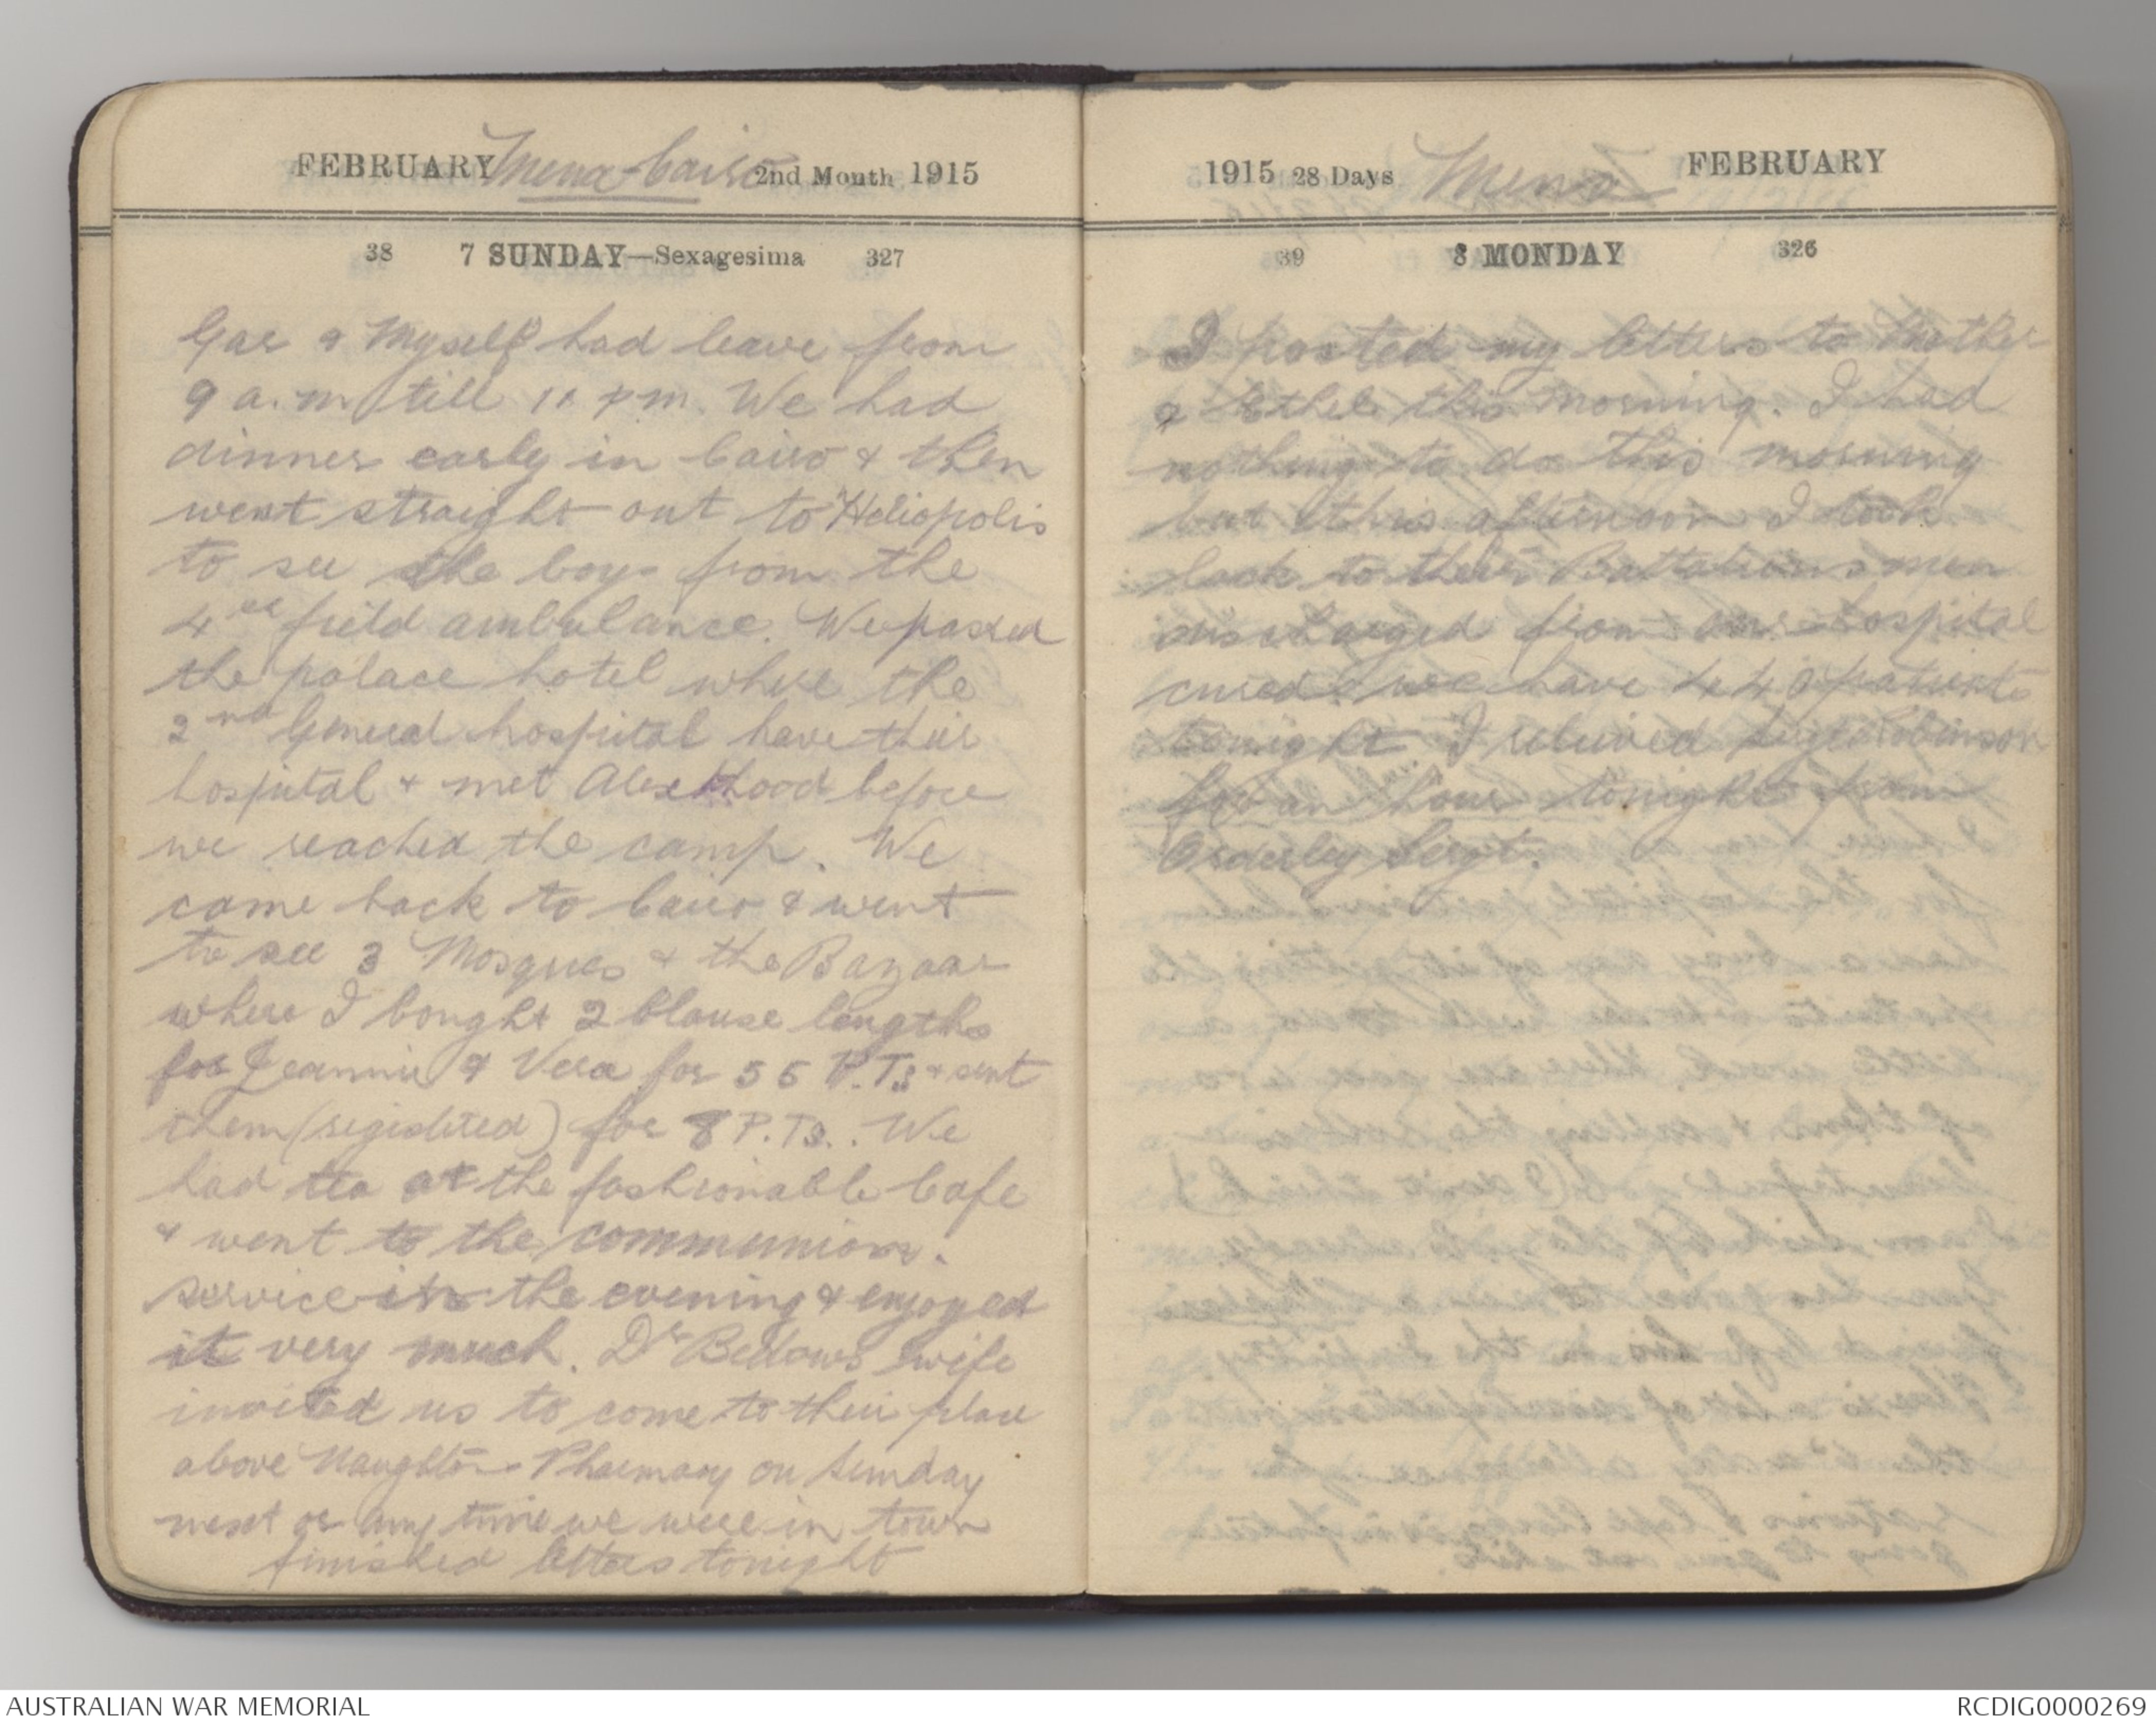 FEBRUARY Mena-Cairo 2nd Month 1915
38 7 SUNDAY—Sexagesima 327
Gar & Myself had leave from
9 a.m. till 11 p m. We had
dinner early in Cairo & then
went straight out to Heliopolis
to see the boys from the
4th field ambulance. We passed
the palace hotel where the
2nd General hospital have their
hospital & met Alex Hood before
we reached the camp. We
came back to Cairo & went
to see 3 Mosques & the Bazaar
where I bought 2 blouse lengths
for Jeannie & Vera for 55 P.Ts & sent
them (registered) for 8 P.Ts.. We
had tea at the fashionable Cafe
& went to the communion.
service in the evening & enjoyed
it very much. Dr Bellows wife
invited us to come to their place
above Naughton Pharmacy on Sunday
next or any time we were in town
finished letters tonight
1915 28 Days Mena FEBRUARY
39 8 MONDAY 326
I posted my letters to Mother
& Ethel this morning. I had
nothing to do this morning
but this afternoon I took
back to their Battalions men
discharged from our hospital
cured. we have 440 patients
tonight I relieved Robinson
for an hour tonight from
Orderley Sergt.
AUSTRALIAN WAR MEMORIAL
RCDIG0000269